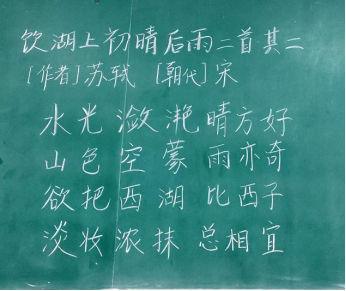 饮湖上初晴后雨二首其二
[作者]苏轼 [朝代]宋
水光潋滟晴方好
山色空蒙雨亦奇
欲把西湖比西子
淡妆浓抹总相宜